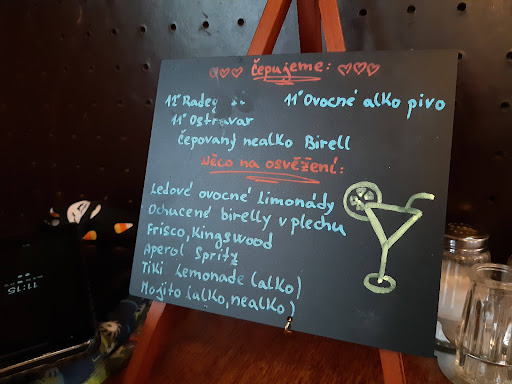 čepujeme:
12° Radeg
11° Ovocné alko pivo
11° Ostravar
čepovaný nealko Birell
Něco na osvěžení:
Ledové ovocné Limonády
Ochucené birelly v plechu
Frisco, Kingswood
Aperol Spritz
Tiki Lemonade (alko)
Mojito (alko, nealko)
11:15